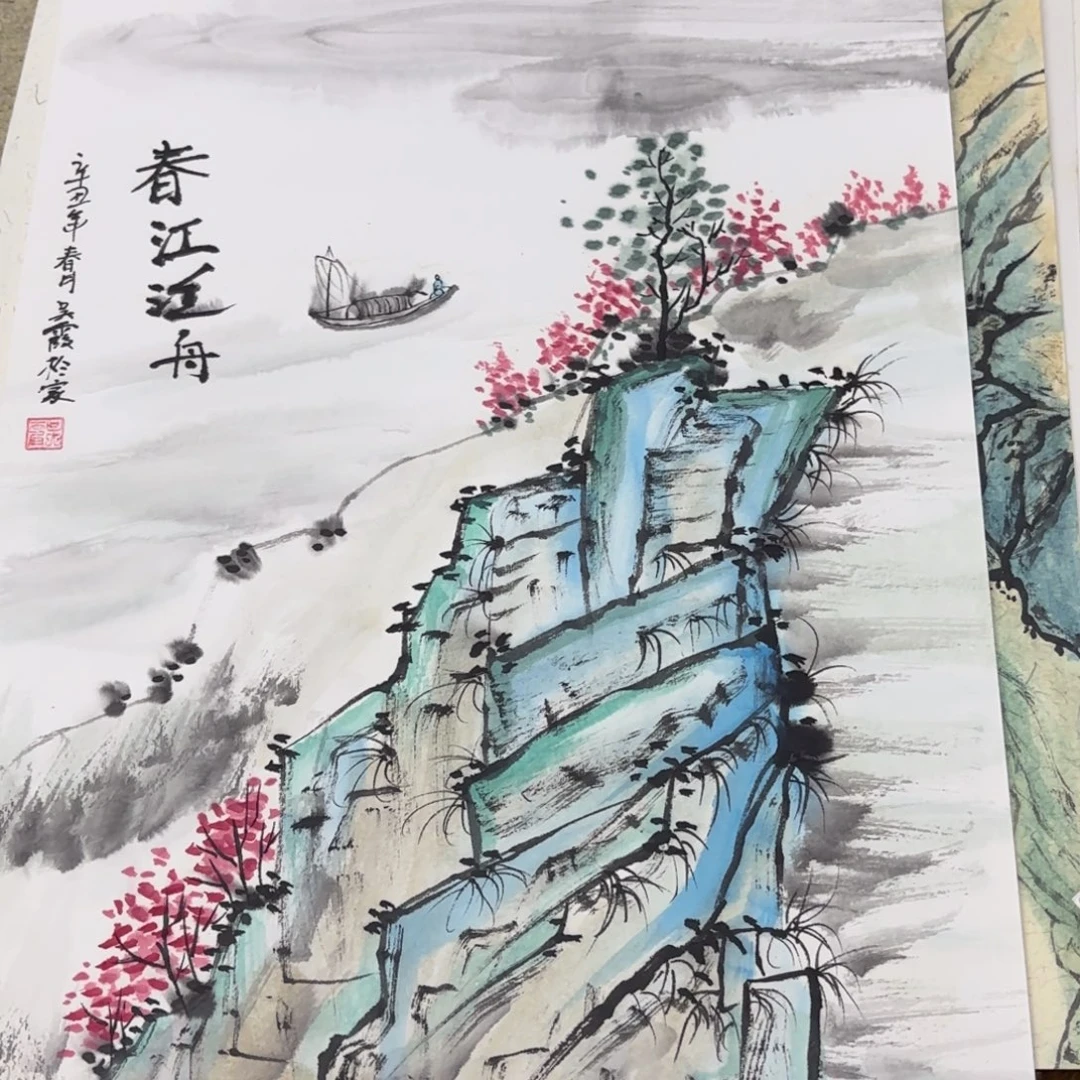 春江泛舟
辛丑年春月吴霞於家